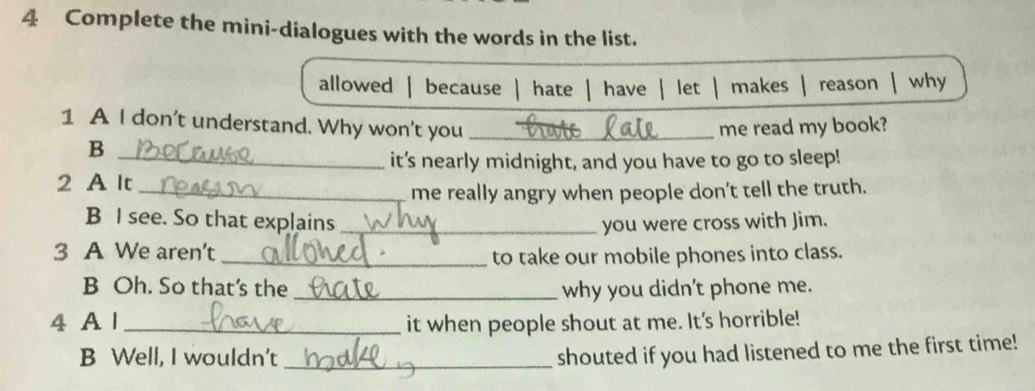 4 Complete the mini-dialogues with the words in the list.
allowed | because | hate | have | let | makes | reason | why
1 A I don't understand. Why won't you hate late me read my book?
B Because it's nearly midnight, and you have to go to sleep!
2 A It reason me really angry when people don't tell the truth.
B I see. So that explains why you were cross with Jim.
3 A We aren't allowed. to take our mobile phones into class.
B Oh. So that's the hate why you didn't phone me.
4 A I have it when people shout at me. It's horrible!
B Well, I wouldn't make shouted if you had listened to me the first time!